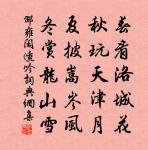 春看洛城花
秋玩天津月
夏披嵩岑風
冬賞龍山雪
邵雍閑適吟詞典網集